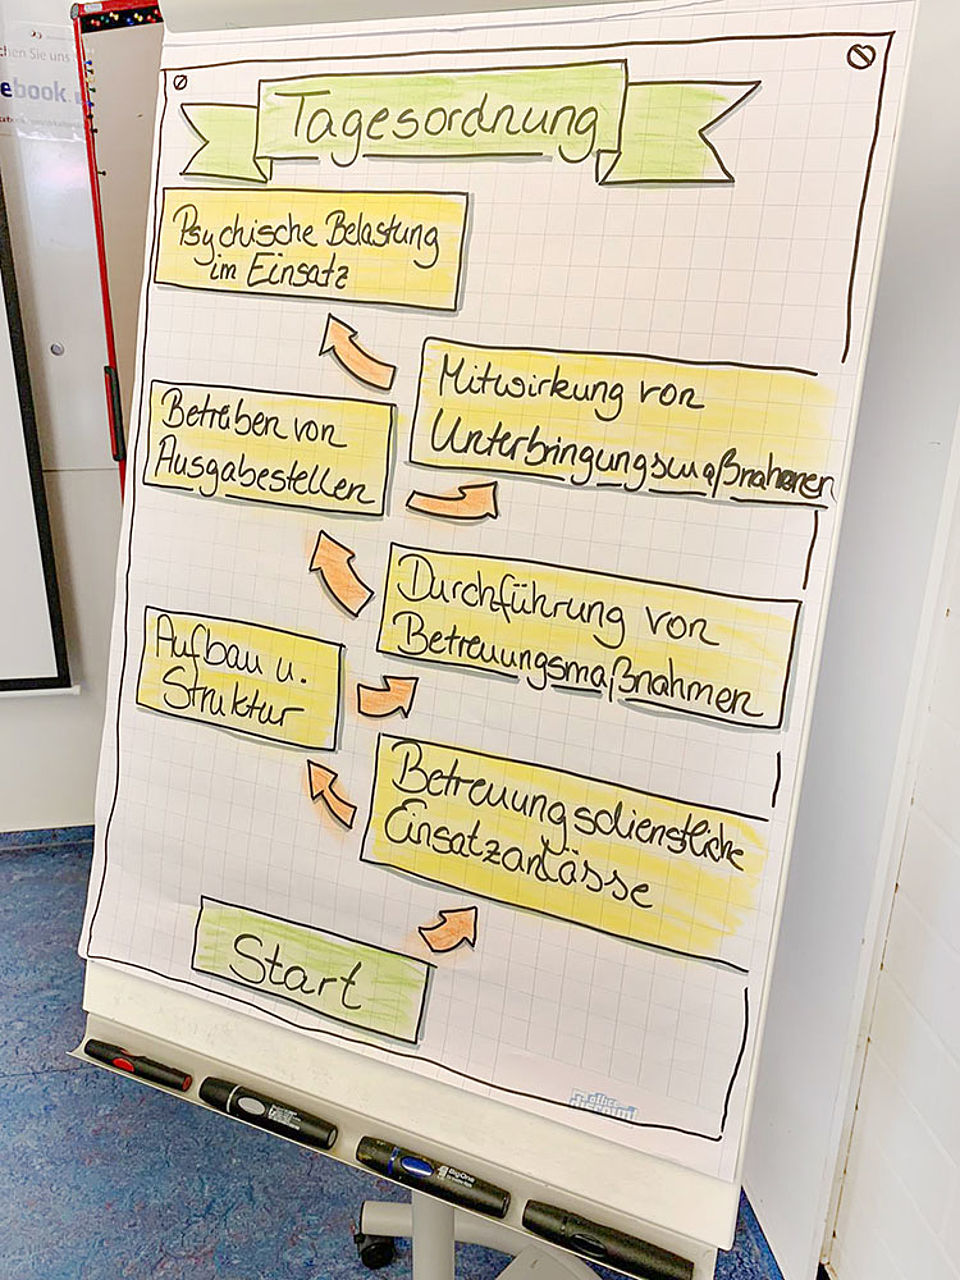 Tagesordnung
Psychische Belastung
im Einsatz
Mitwirkung von
Unterbringungsmaßnahmen
Betreiben von
Ausgabestellen
Durchführung von
Betreuungsmaßnahmen
Aufbau u.
Struktur
Betreuungsdienstliche
Einsatzanlässe
Start
office
discount
chen Sie uns
ebook.
BigOne